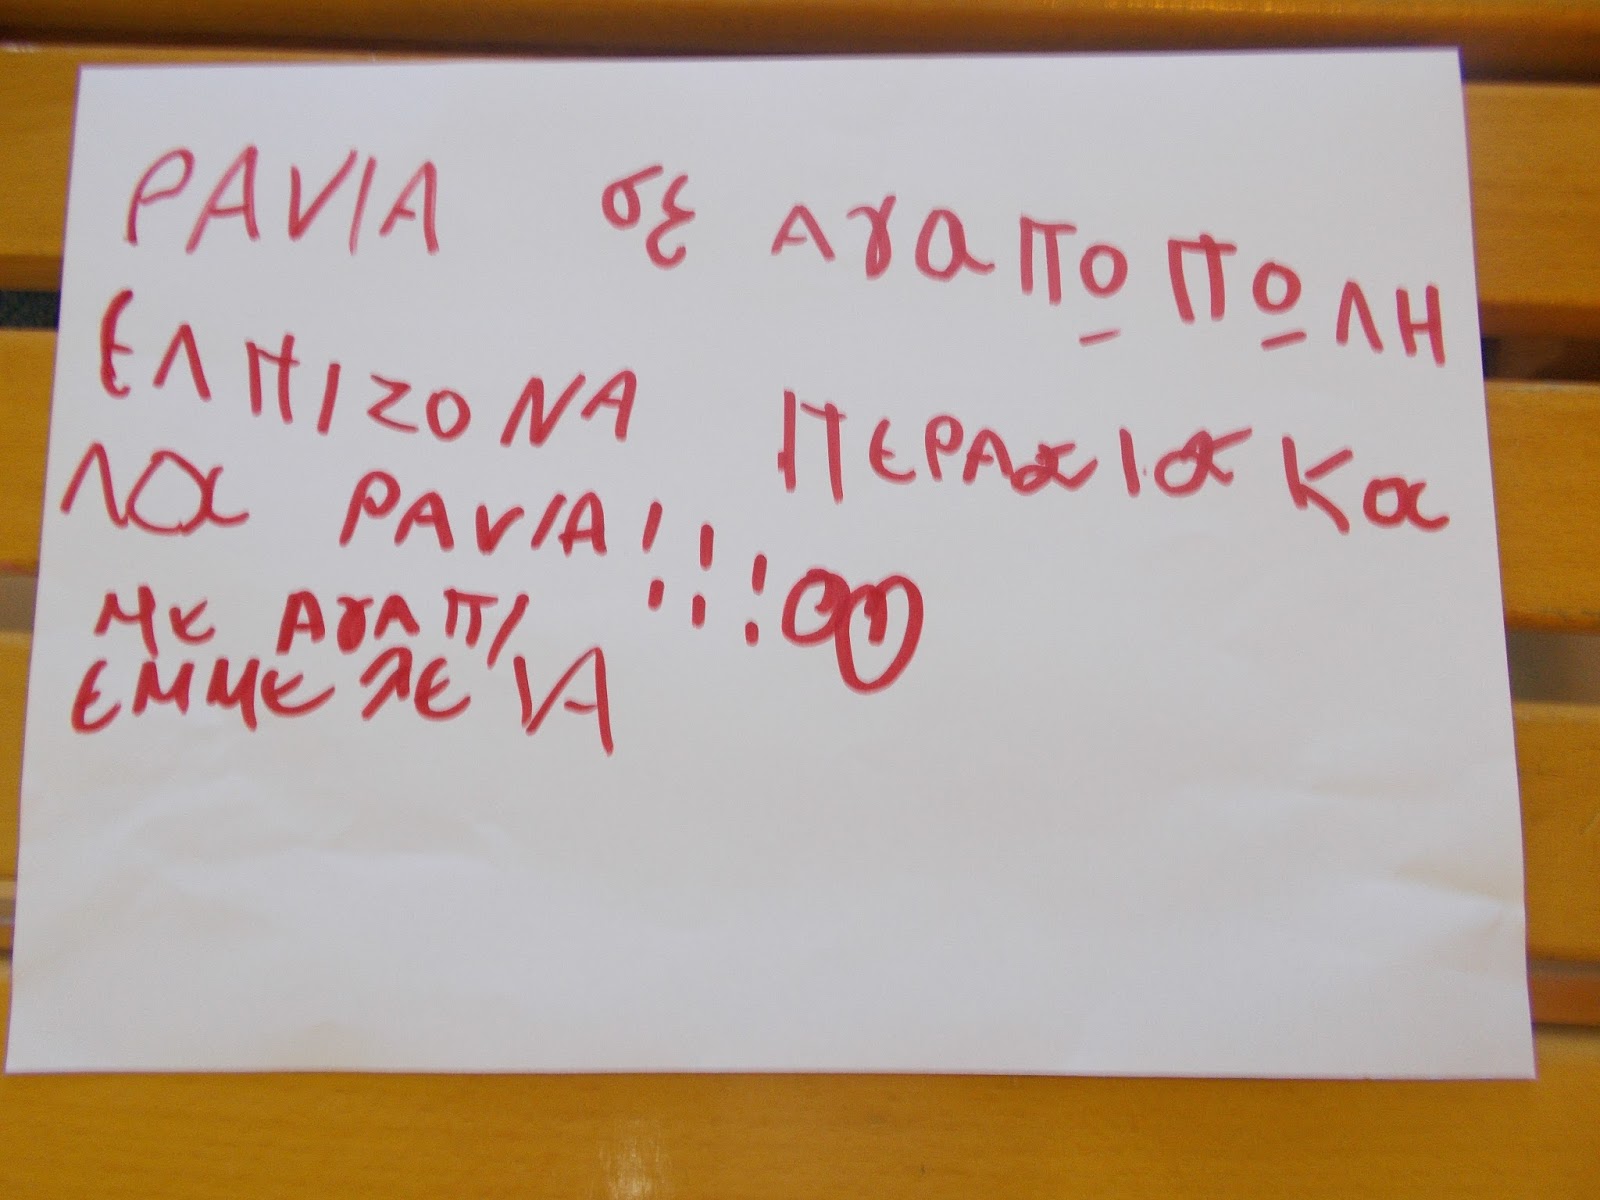 ΡΑΝΙΑ σε ΑγαΠΟ ΠΟΛΗ
ΕΛΠΙΖΟ ΝΑ ΠΕΡΑσισ Κα
ΛΟα ΡΑΝΙΑ!!!
με ΑγΑΠΙ
ΕΜΜΕλΕΙΑ